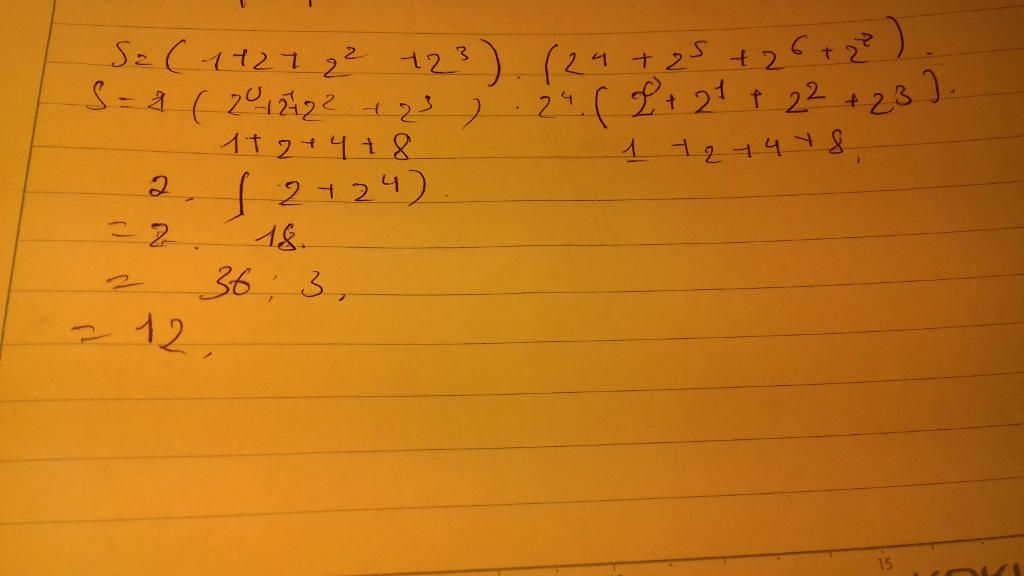 S=( 1+2+ 2² +2³ ) . (2⁴ + 2⁵ + 2⁶ + 2⁷ ) .
S = ( 2⁰+2¹+2² + 2³ ) . 2⁴ . ( 2⁰ + 2¹ + 2² + 2³ ) .
1+2+4+8 1 +2+4+8 .
2 . ( 2 + 2⁴ ) .
= 2 . 18 .
= 36 : 3 ,
= 12 .
15